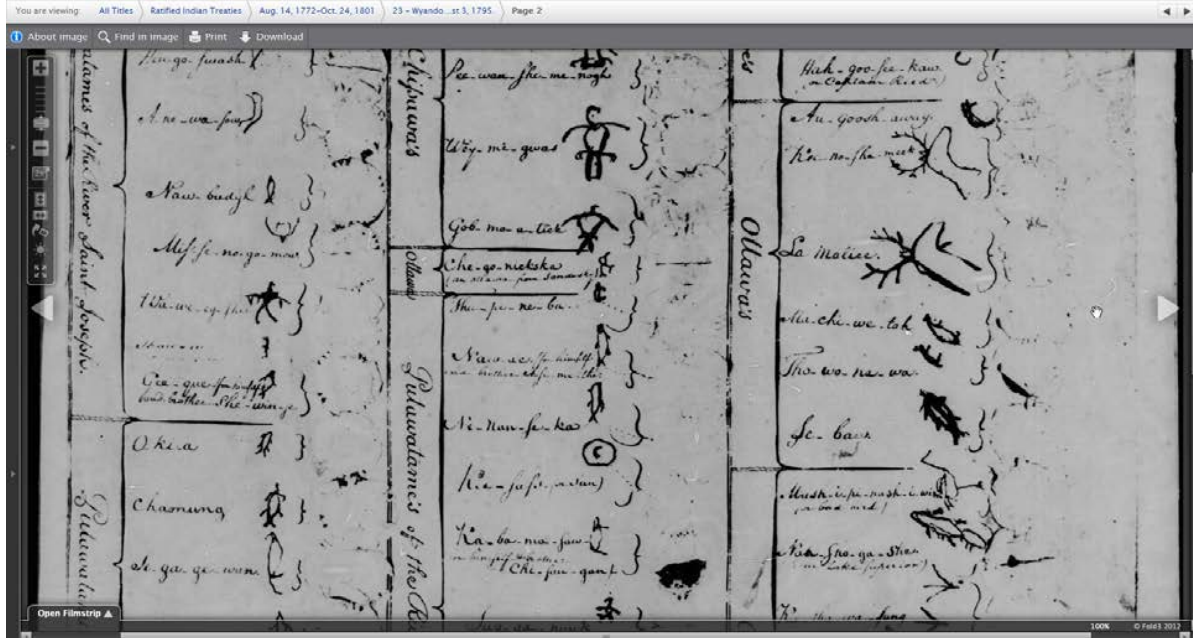 You are viewing: All Titles Ratified Indian Treaties Aug. 14, 1772-Oct. 24, 1801 23 - Wyando...st 3, 1795. Page 2
About image Find in image Print Download
Putawatames of the River Saint Joseph.
A-ne-wa-
Naw budyl
Mis-se-no-go-mow
Wa-we-eg-she
Gee-gue for himself
and brother She-win-se
Okia
Chamung
Se-ga-ge-wan
Chipuwa's
Pee-wan-she-me-nogh
Wey-me-gwas
Gob-mo-a-tick
Ottawa
Che-go-nickska
(an Ottawa from Sandusky)
Putawatame's of the
Shu-pe-ne-bu
Naw-ac for himself
and brother
Ne-nan-se-ka
Kee-sass (or sun)
Ka-ba-ma-saw
for himself & brother
Chi-sau-gan
Hah-goo-see-kaw
(or Captain Reed)
Ottawa's
Au-goosh-away
Kee-no-sha-meek
La Malice
Ma-chi-we-tah
Tho-wo-na-wa
Se-caw
Mash-i-pi-nash-i-wish
(or bad bird)
Nah-sho-ga-she
(from Lake Superior)
Open Filmstrip
100% © Fold3 2012